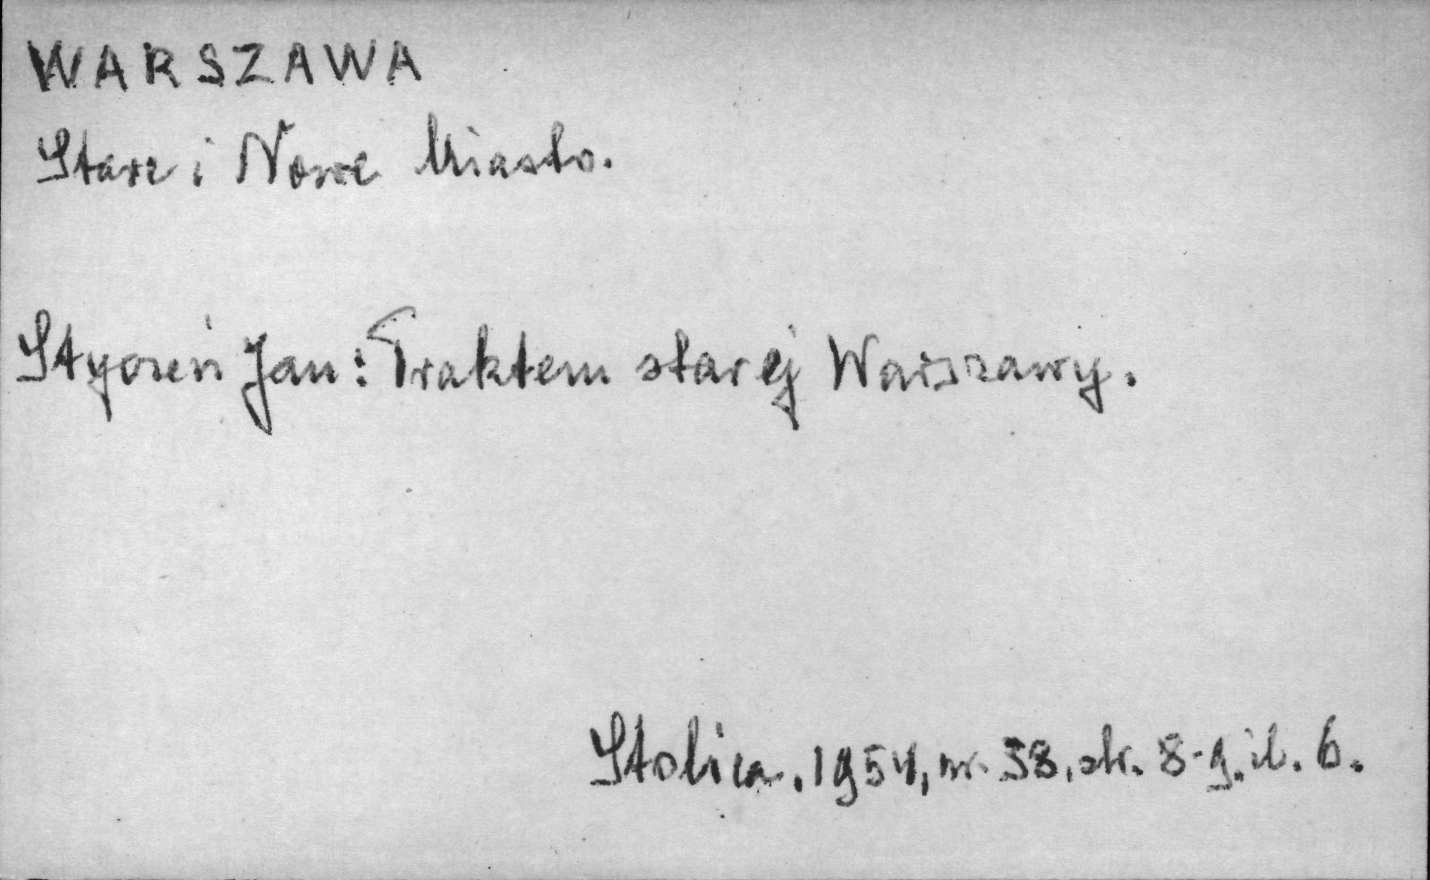 WARSZAWA
Stare i Nowe Miasto.
Styczeń Jan: Traktem starej Warszawy.
Stolica. 1954, nr. 38, str. 8-9. il. 6.